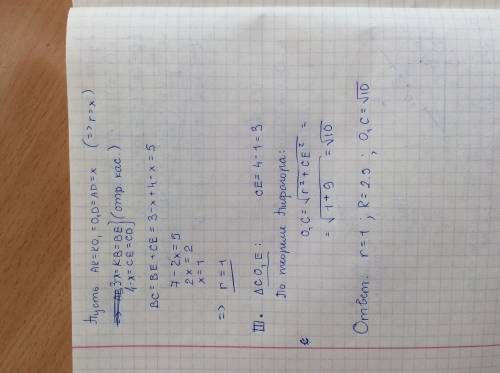 Пусть AK=KO₁=O₁D=AD=x (=> r=x)
3-x=KB=BE} (отр. кас.)
4-x=CE=CD}
BC=BE+CE=3-x+4-x=5
7-2x=5
2x=2
x=1
=> r=1
III. ΔCO₁E: CE=4-1=3
По теореме Пифагора:
O₁C=√(r²+CE²)=
=√(1+9)=√10
Ответ: r=1; R=2.5; O₁C=√10